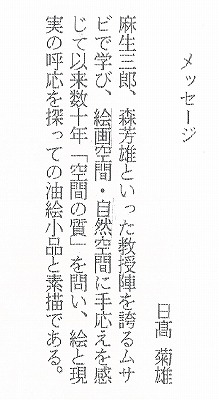 メッセージ
日高 菊雄
麻生三郎、森芳雄といった教授陣を誇るムサ
ビで学び、絵画空間・自然空間に手応えを感
じて以来数十年「空間の質」を問い、絵と現
実の呼応を探っての油絵小品と素描である。